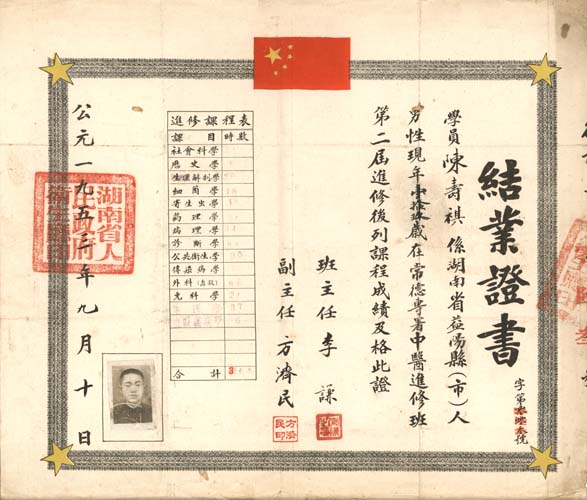 結業證書
字第號
學員陳壽祺係湖南省益陽縣(市)人
男性現年歲在常德專署中醫進修班
第二屆進修後列課程成績及格此證
班主任 李謙
副主任 方濟民
方濟民印
進修課程表
課目 時数
社會科學
史學
生理解剖學
細菌學
寄生虫學
药理學
病理學
診斷學
公共衛生學
傳染病學
外科(急救)學
科學
合計
公元一九五三年九月十日
湖南省人
民政府